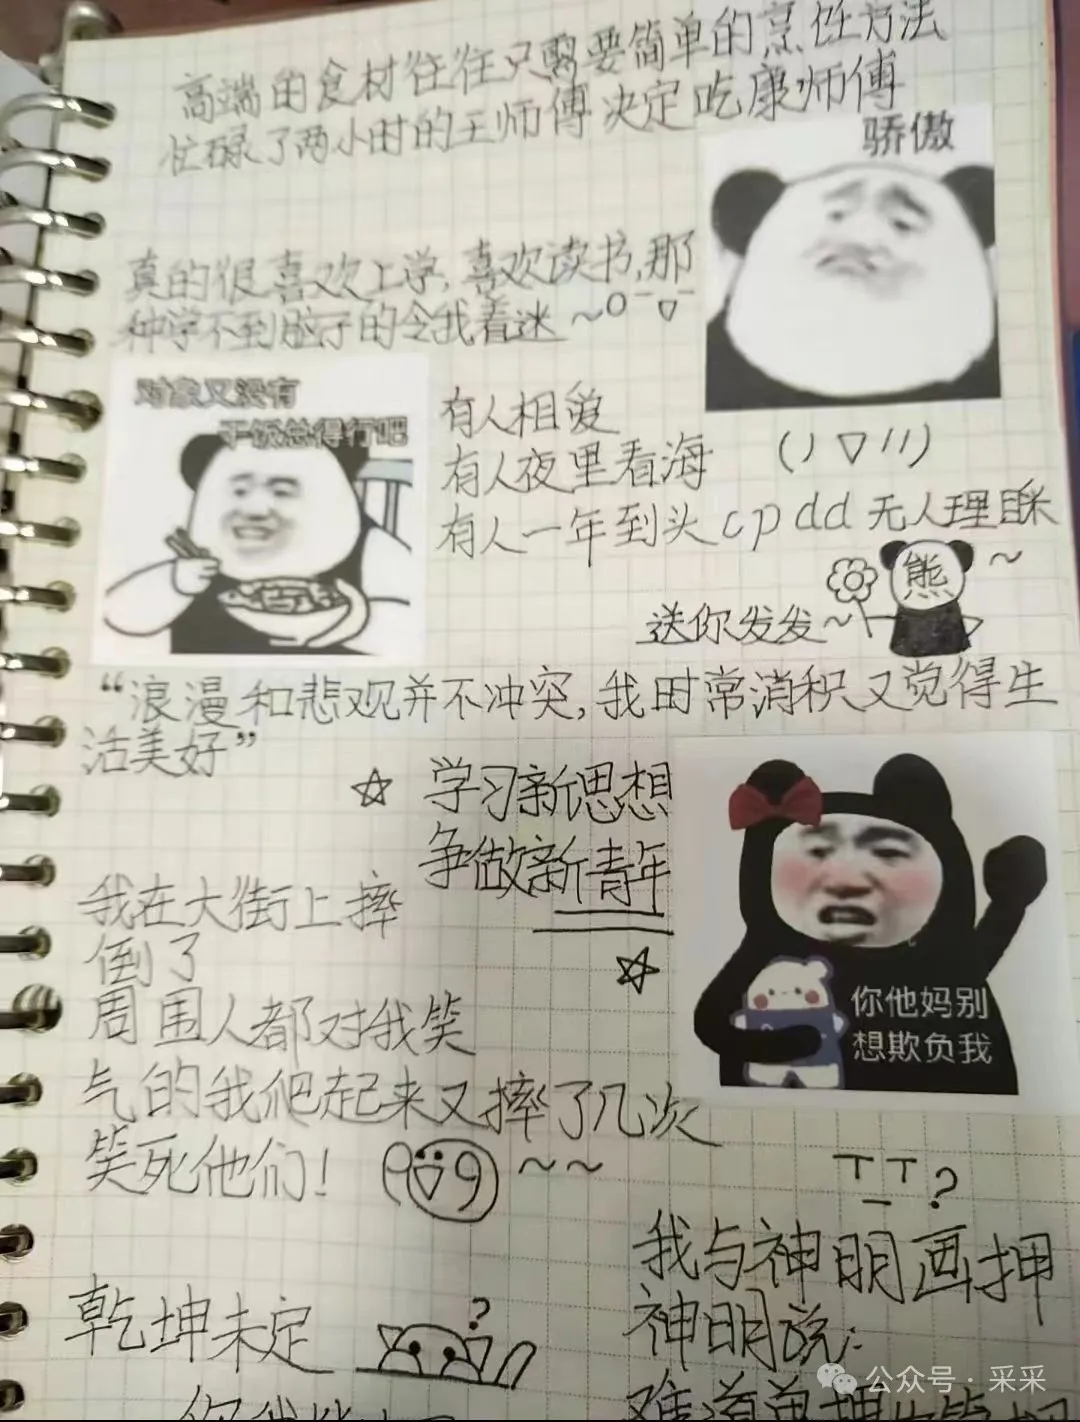 高端的食材往往只需要简单的烹饪方法
忙碌了两小时的王师傅决定吃康师傅
骄傲
真的很喜欢上学,喜欢读书,那
种学不到脑子的令我着迷~
对象又没有
干饭总得行吧
有人相爱
有人夜里看海
有人一年到头cpdd无人理睬
熊
送你发发~
“浪漫和悲观并不冲突,我时常消积又觉得生
活美好”
☆ 学习新思想
争做新青年
☆
我在大街上摔
倒了
周围人都对我笑
气的我爬起来又摔了几次
笑死他们!
~~
你他妈别
想欺负我
?
我与神明画押
神明说:
乾坤未定
?
公众号·采采